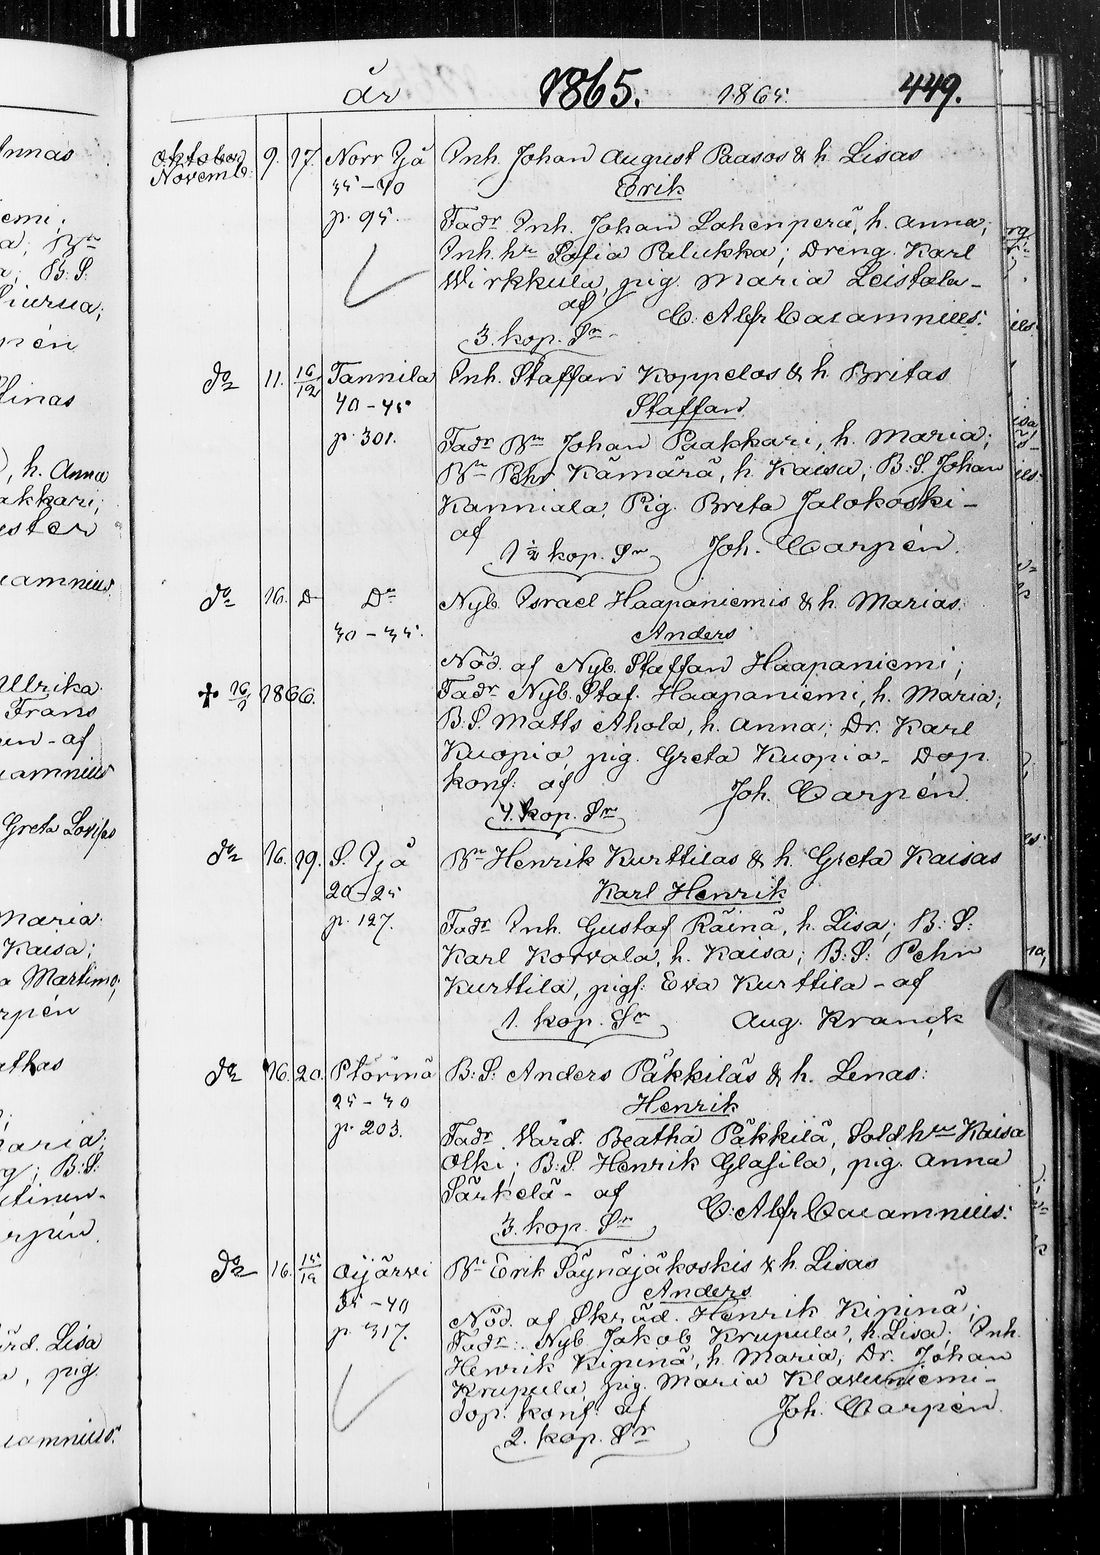 år 1865. 1865. 449.
Oktober
Novemb. 9. 17. Norr Ijå Inh. Johan August Paasos & h. Lisas
35-40 Erik
p. 95. Fadr Inh. Johan Lohenperä, h. Anna;
Inh. hr Sofia Palukka; Dreng. Karl
Wirkkula, pig. Maria Leistola-
af C. Alfr Calamnius.
3. kop. Sr
do 11. 16/12 Tannila Inh. Staffan Koppelos & h Britas
40-45 Staffan
p. 301. Fadr Bn Johan Paakkari, h. Maria;
Bn Pehr Kämärä, h. Kaisa; B.S. Johan
Kanniala, Pig. Breta Jalokoski-
af
1 1/2 kop. Sr Joh. Carpén.
do 16. D Do Nyb. Israel Haapaniemis & h. Marias.
30-35. Anders
Nöd. af Nyb. Staffan Haapaniemi;
† 16/1 1866. Fadr Nyb. Staf. Haapaniemi, h. Maria;
B.S Matts Ahola, h. Anna; Dr. Karl
Kuopio, pig. Greta Kuopio- Dop
konf. af Joh. Carpén
4. kop. Sr
do 16. 19. S. Ijå Bn Henrik Kurttilas & h. Greta Kaisas
20-25 Karl Henrik
p. 127. Fadr Inh. Gustaf Räinä, h. Lisa; B.S:
Karl Korvala, h. Kaisa; B.S: Pehr
Kurttila, pigf. Eva Kurttila - af
1. kop. Sr Aug. Kranck
do 16. 20. Ptörmä B.S: Anders Päkkiläs & h. Lenas.
25-30 Henrik
p. 203. Fadr Värd. Beatha Päkkilä, Soldhr Kaisa
Olki; B.S Henrik Glafila, pig. Anna
Särkelä- af C. Alfr Calamnius.
3. kop. Sr
do 16. 15/12 Oijärvi Bn Erik Säynäjäkoskis & h Lisas
35-40 Anders
p. 317. Nöd. af Skräd. Henrik Kipinä;
Fadr: Nyb Jakob Krupula, h. Lisa; Inh.
Henrik Kipinä, h. Maria; Dr. Johan
Krupula, pig. Maria Klaavuniemi-
dop. konf. af Joh. Carpén.
2. kop. Sr